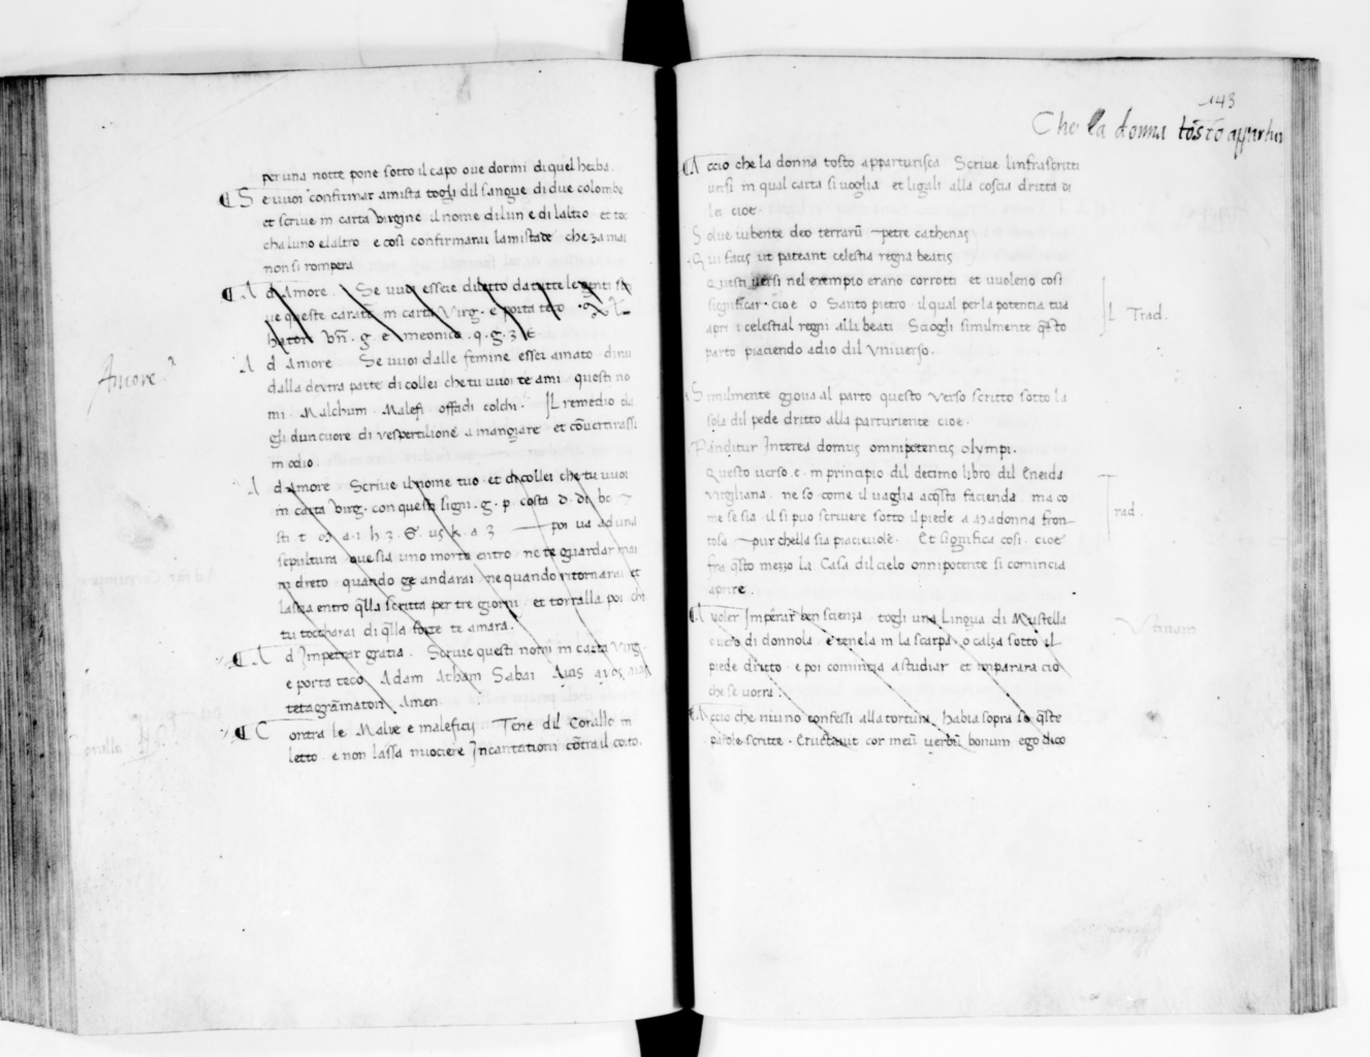 per una notte pone sotto il capo oue dormi di quel herba.
Se uuoi confirmar amista togli dil sangue di due colombe
et scriue in carta virgine il nome di lun e di laltro et toc
cha luno el altro e cosi confirmarai lamistade che za mai
non si rompera
Ad Amore. Se uuoi essere diletto da tutte le genti scri
ue queste caratt in carta Virg. e porta teco
Vn. g. e meonico. q. g. 3
Amore
Ad Amore Se uuoi dalle femine esser amato dirai
dalla dextra parte di collei che tu uuoi te ami questi no
mi. Malchum. Malefi offadi colchi. JL remedio da
gli dun cuore di vespertilione a mangiare et cõuertirassi
in odio.
Ad Amore Scriue il nome tuo et di collei che tu uuoi
in carta Virg. con questi signi. g. p. costa. d. de. bo
poi ua ad una
sepultura que sia uno morto entro ne te guardar mai
in dreto quando ge andarai ne quando ritornarai et
lassa entro q̃lla scritta per tre giorni et torralla poi chi
tu toccharai di q̃lla forte te amara.
Ad Jmpetrar gratia. Scriue questi nomi in carta Virg.
e porta teco Adam Atham Sabai
tetagrãmaton Amen
Contra le Malie e maleficij Tene dil Corallo in
letto. e non lassa nuocere Jncantationi cõtra il corto.
143
Che la donna tosto appartur
Accio che la donna tosto apparturisca Scriue linfrascritti
uersi in qual carta si uoglia et ligali alla coscia dritta di
lei cioe.
Solue iubente deo terrarũ petre cathenas
Qui facis ut pateant celestia regna beatis
Questi uersi nel exempio erano corrotti et uuoleno cosi
significar. cioe o Santo pietro il qual per la potentia tua
apri i celestial regni alli beati Sciogli similmente q̃sto
parto piaciendo a dio dil Vniuerso.
JL Trad.
Similmente gioua al parto questo Verso scritto sotto la
sola dil pede dritto alla parturiente cioe.
Panditur Jnterea domus omnipotentis olympi.
Questo uerso. e. in principio dil decimo libro dil Eneida
Virgiliana. ne so come il uaglia a q̃sta facienda. ma co
me se sia il si puo scriuere sotto il piede a Madonna fron
tosa pur chella sia piacieuole. Et significa cosi. cioe
fra q̃sto mezzo la Casa dil cielo omnipotente si comincia
aprire.
Trad.
A uoler Jmparar ben scienza togli una Lingua di Mustella
ouero di donnola e tenela in la scarpa o calza sotto il
piede dritto e poi comincia a studiar et imparara cio
che se uorra.
Accio che niuno confessi alla tortura habia sopra se q̃ste
parole scritte. Eructauit cor meũ uerbũ bonum ego dico